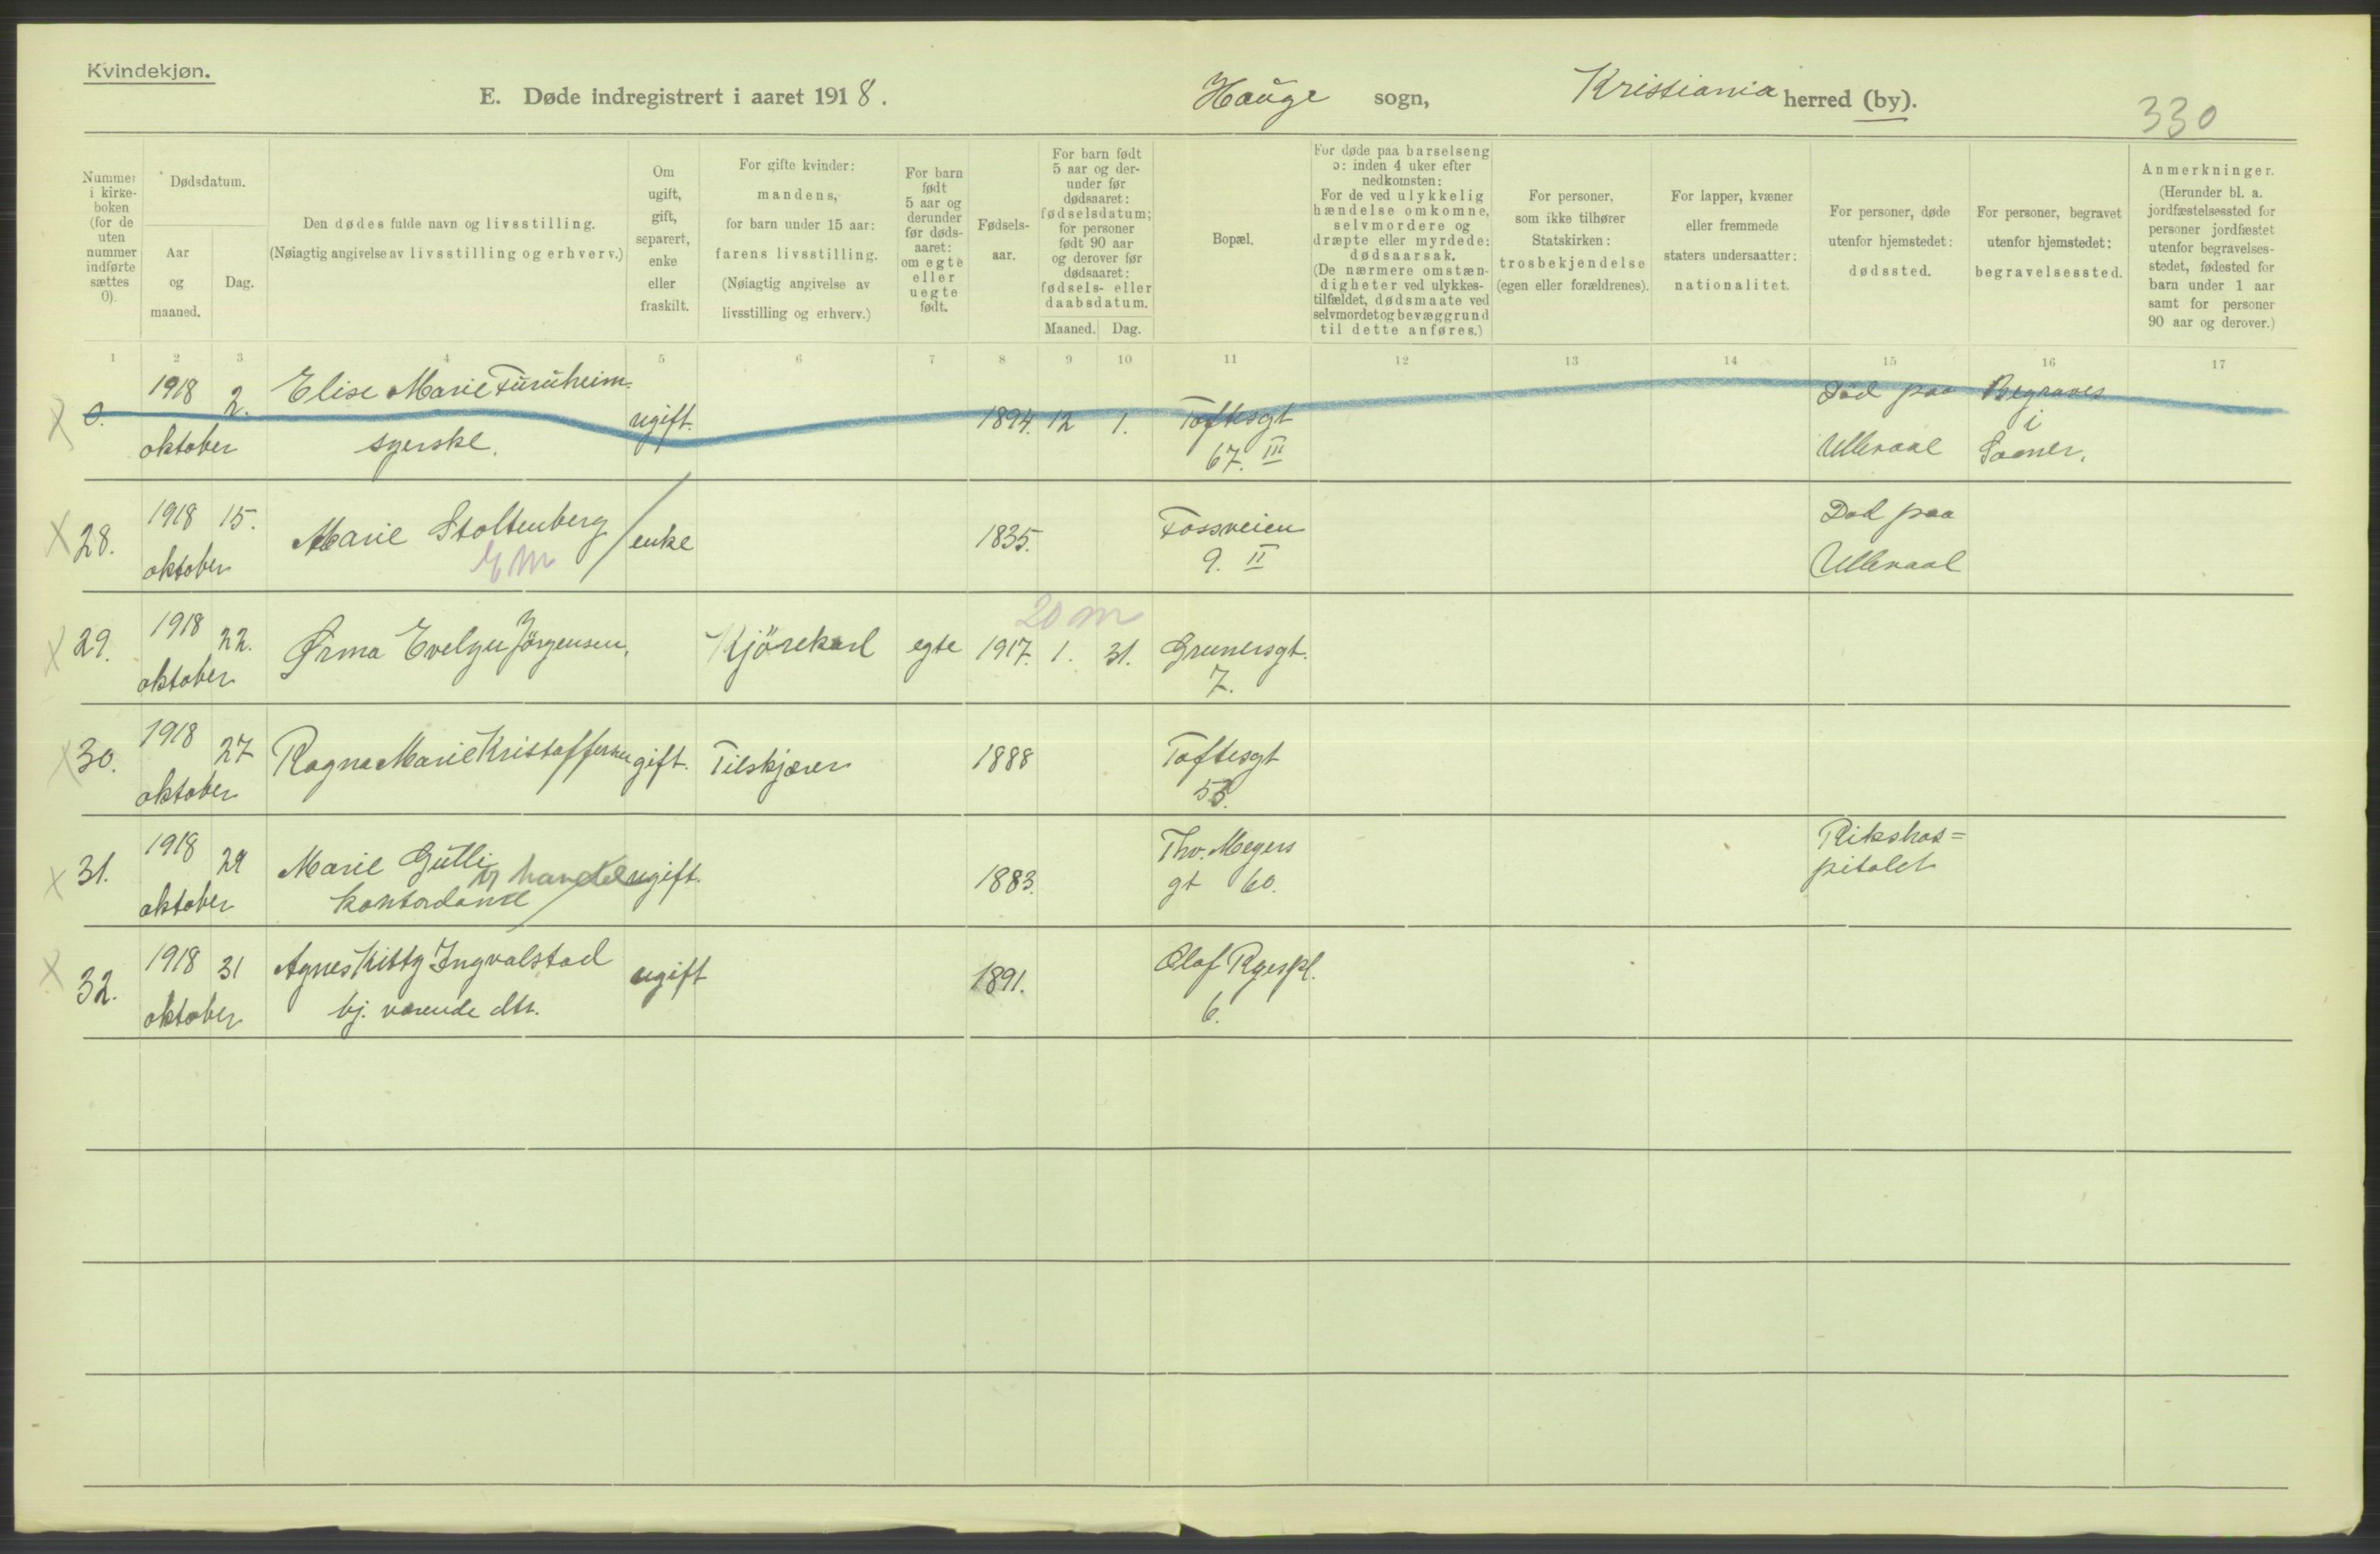 Kvindekjøn.
E. Døde indregistrert i aaret 1918. Hauge sogn, Kristiania herred (by).
330
Nummer i kirke- boken (for de uten nummer indførte sættes 0).
Dødsdatum.
Aar og maaned.
Dag.
Den dødes fulde navn og livsstilling.
(Nøiagtig angivelse av livsstilling og erhverv.)
Om ugift, gift, separert, enke eller fraskilt.
For gifte kvinder: mandens, for barn under 15 aar: farens livsstilling. (Nøiagtig angivelse av livsstilling og erhverv.)
For barn født 5 aar og derunder før døds- aaret: om egte eller uegte født.
Fødsels- aar.
For barn født 5 aar og der- under før dødsaaret: fødselsdatum; for personer født 90 aar og derover før dødsaaret: fødsels- eller daabsdatum.
Maaned. Dag.
Bopæl.
For døde paa barselseng ɔ: inden 4 uker efter nedkomsten: For de ved ulykkelig hændelse omkomne, selvmordere og dræpte eller myrdede: dødsaarsak. (De nærmere omstæn- digheter ved ulykkes- tilfældet, dødsmaate ved selvmordet og bevæggrund til dette anføres.)
For personer, som ikke tilhører Statskirken: trosbekjendelse (egen eller forældrenes).
For lapper, kvæner eller fremmede staters undersaatter: nationalitet.
For personer, døde utenfor hjemstedet: dødssted.
For personer, begravet utenfor hjemstedet: begravelsessted.
Anmerkninger. (Herunder bl. a. jordfæstelsessted for personer jordfæstet utenfor begravelses- stedet, fødested for barn under 1 aar samt for personer 90 aar og derover.)
1 2 3 4 5 6 7 8 9 10 11 12 13 14 15 16 17
0. 1918 2. Elise Marie Furuheim. ugift. 1894. 12 1. Toftesgt Död paa Begraves i
oktober syerske. 67. III Ullevaal
28. 1918 15. Marie Stoltenberg enke 1835. Fossveien Död paa
oktober 9. II Ullevaal
20 m
29. 1918 22. Evelyn Jörgensen, Kjörekarl egte 1917. 1. 31. Grunersgt.
oktober 7.
30. 1918 27 Ragna Marie Kristoffersen gift. Tilskjærer 1888 Toftesgt
oktober
31. 1918 29 Marie Gulli ugift. 1883. Thv. Meyers Rikshos=
oktober kontordame handel gt 60. pitalet
32. 1918 31 Agnes Kitty Ingvalstad ugift 1891. Olaf Ryespl.
oktober hj. værende dtr. 6.